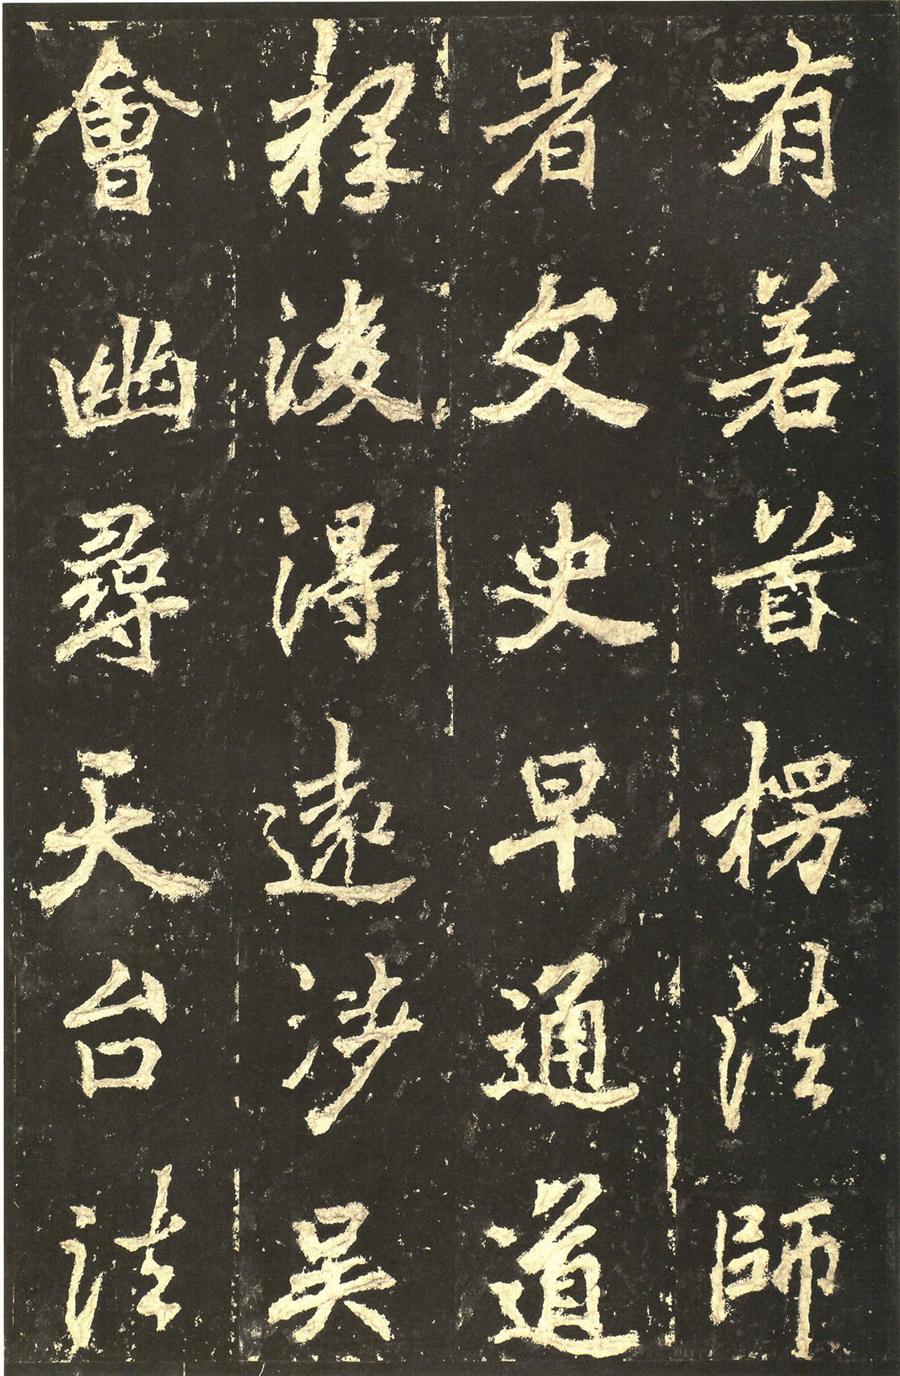 有若首楞法師
者文史早通道
釋淩得遠涉吳
會幽尋天台法